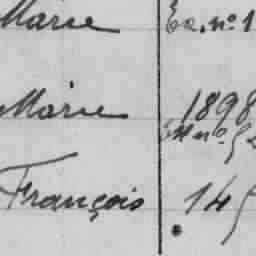 Marie Ex. nº 1
Marie 1898
nº 5
François 145